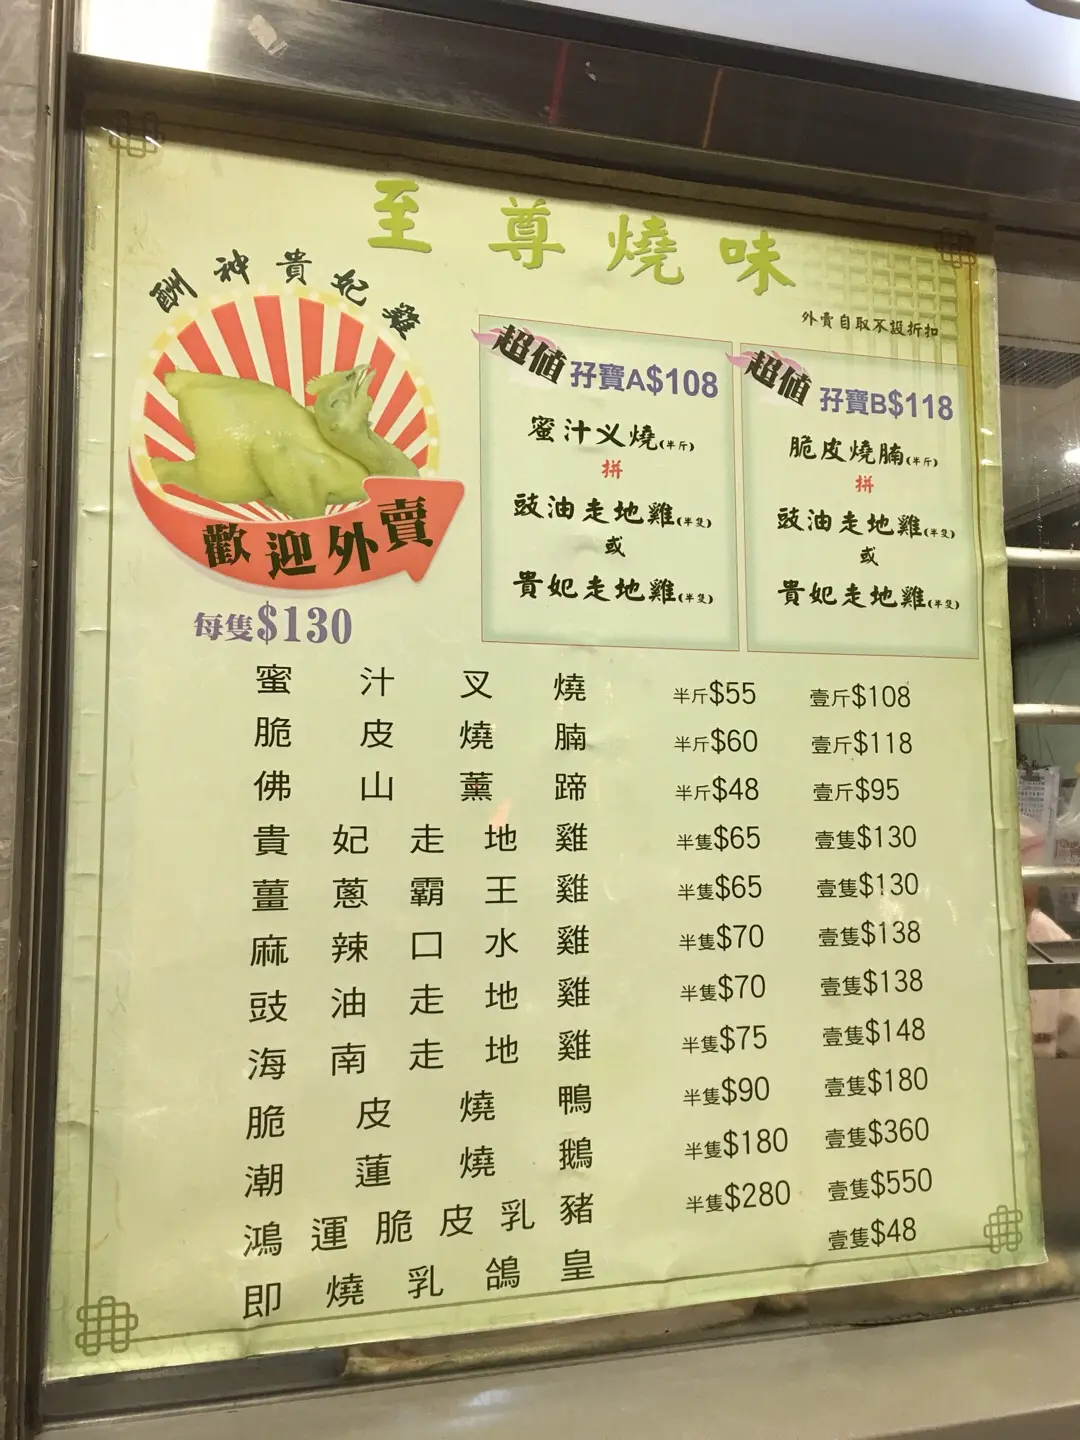 至尊燒味
外賣自取不設折扣
酬神貴妃雞
歡迎外賣
每隻$130
超值 孖寶A$108
蜜汁义燒(半斤)
拼
豉油走地雞(半隻)
或
貴妃走地雞(半隻)
超值 孖寶B$118
脆皮燒腩(半斤)
拼
豉油走地雞(半隻)
或
貴妃走地雞(半隻)
蜜汁叉燒 半斤$55 壹斤$108
脆皮燒腩 半斤$60 壹斤$118
佛山薰蹄 半斤$48 壹斤$95
貴妃走地雞 半隻$65 壹隻$130
薑蔥霸王雞 半隻$65 壹隻$130
麻辣口水雞 半隻$70 壹隻$138
豉油走地雞 半隻$70 壹隻$138
海南走地雞 半隻$75 壹隻$148
脆皮燒鴨 半隻$90 壹隻$180
潮蓮燒鵝 半隻$180 壹隻$360
鴻運脆皮乳豬 半隻$280 壹隻$550
即燒乳鴿皇 壹隻$48